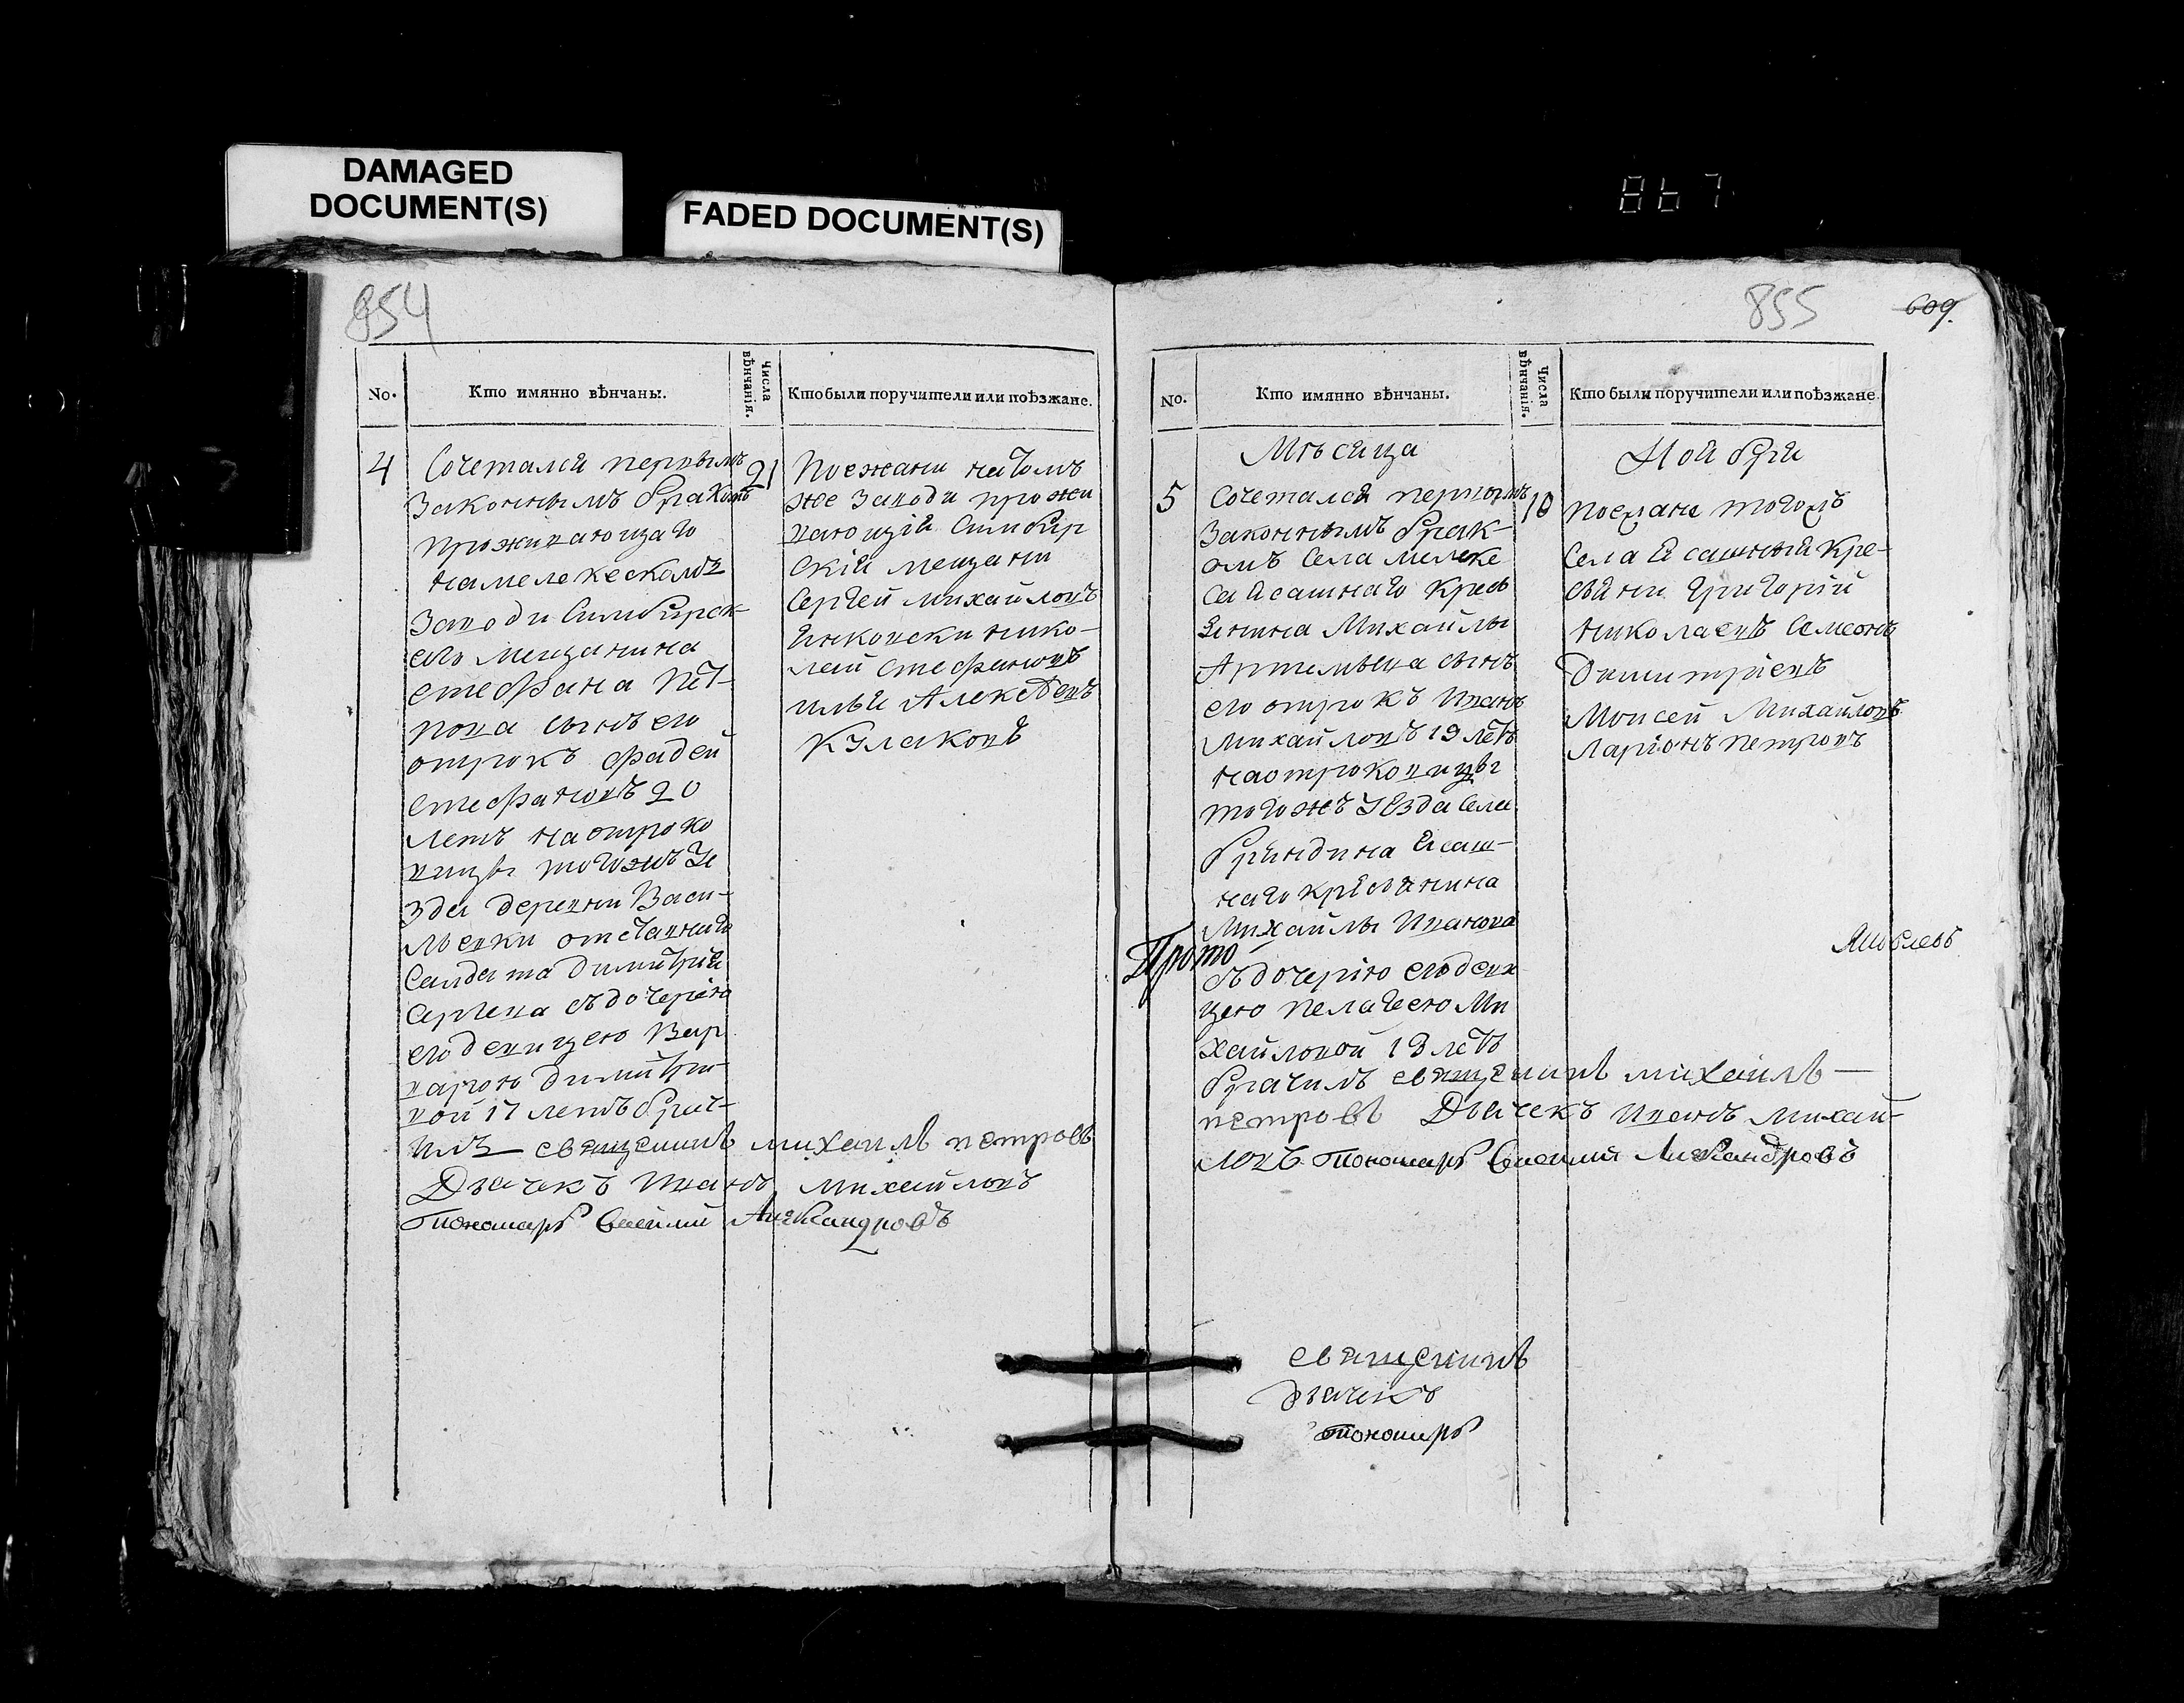 DAMAGED
DOCUMENT(S)
FADED DOCUMENT(S)
867
854
No.
Кто имянно вѣнчаны.
Числа вѣнчанія.
Кто были поручители или поѣзжане.
4
Сочетался первымъ
21
Законнымъ бракомъ
проживающаго
на мелекескомъ
Заводи Симбирск-
его мещанина
стефана
пова сынъ его
отрокъ фадей
стефановъ 20
летъ на отроко
вицы тогожъ уе
зда деревни Васи-
льевки отставнаго
Салдата димитрія
Сергева съ дочерію
его девицею Вар
варою димитри-
вой 17 летъ бра-
чилъ священникъ михаилъ петровъ
Дьячекъ иванъ михайловъ
Пономарь Александровъ
Поежани натомъ
же Заводи прожи
вающій Симбир
скій мещани
Сергей михайловъ
нико-
лай стефановъ
илья Алексѣевъ
Кулаковъ
855
609.
No.
Кто имянно вѣнчаны.
Числа вѣнчанія.
Кто были поручители или поѣзжане
Мѣсяца
Ноября
5
Сочетался первымъ
10
Законнымъ брак-
омъ Села мелеке
са ясашнаго кресть
янина Михайлы
Артемьева сынъ
его отрокъ иванъ
михайловъ 19 летъ
на отроковицы
тогожъ уезда Села
бряндина ясаш-
наго крестьянина
Михайлы иванова
съ дочерію его деви
цею пелагеею Ми
хайловой 19 летъ
брачилъ священникъ михаилъ
петровъ Дьячекъ иванъ михай-
ловъ Пономарь Александровъ
поезжане тогожъ
Села ясашныя кре-
стьяни григорій
николаевъ Семенъ
димитріевъ
Моисей Михайловъ
Ларіонъ петровъ
Прото
священникъ
дьячекъ
Пономарь